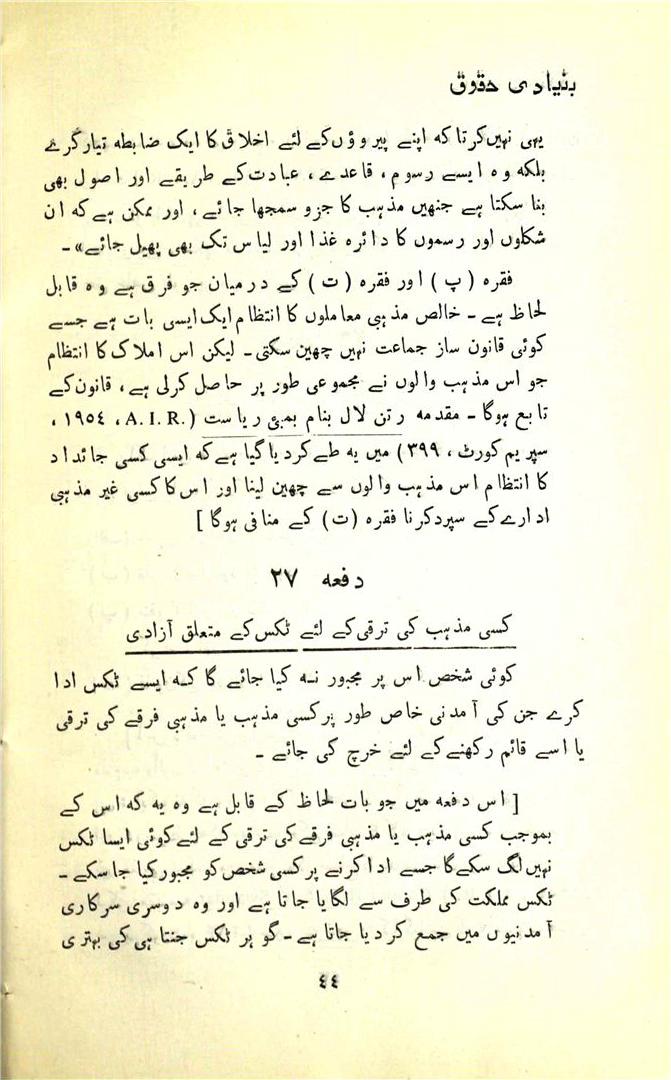 بنیادی حقوق
یہی نہیں کرتا کہ اپنے پیروؤں کے لئے اخلاق کا ایک ضابطہ تیار کرے
بلکہ وہ ایسے رسوم، قاعدے، عبادت کے طریقے اور اصول بھی
بنا سکتا ہے جنھیں مذہب کا جزو سمجھا جائے، اور ممکن ہے کہ ان
شکلوں اور رسموں کا دائرہ غذا اور لباس تک بھی پھیل جائے» ۔
فقرہ (پ) اور فقرہ (ت) کے درمیان جو فرق ہے وہ قابل
لحاظ ہے ۔ خالص مذہبی معاملوں کا انتظام ایک ایسی بات ہے جسے
کوئی قانون ساز جماعت نہیں چھین سکتی ۔ لیکن اس املاک کا انتظام
جو اس مذہب والوں نے مجموعی طور پر حاصل کرلی ہے، قانون کے
تابع ہوگا ۔ مقدمہ رتن لال بنام بمبئی ریاست (.A. I. R، ١٩٥٤،
سپریم کورٹ، ٣٩٩) میں یہ طے کردیا گیا ہے کہ ایسی کسی جائداد
کا انتظام اس مذہب والوں سے چھین لینا اور اس کا کسی غیر مذہبی
ادارے کے سپرد کرنا فقرہ (ت) کے منافی ہوگا ]
دفعہ ٢٧
کسی مذہب کی ترقی کے لئے ٹکس کے متعلق آزادی
کوئی شخص اس پر مجبور نہ کیا جائے گا کہ ایسے ٹکس ادا
کرے جن کی آمدنی خاص طور پر کسی مذہب یا مذہبی فرقے کی ترقی
یا اسے قائم رکھنے کے لئے خرچ کی جائے ۔
[ اس دفعہ میں جو بات لحاظ کے قابل ہے وہ یہ کہ اس کے
بموجب کسی مذہب یا مذہبی فرقے کی ترقی کے لئے کوئی ایسا ٹکس
نہیں لگ سکے گا جسے ادا کرنے پر کسی شخص کو مجبور کیا جا سکے ۔
ٹکس مملکت کی طرف سے لگایا جاتا ہے اور وہ دوسری سرکاری
آمدنیوں میں جمع کر دیا جاتا ہے ۔ گو ہر ٹکس جنتا ہی کی بہتری
٤٤